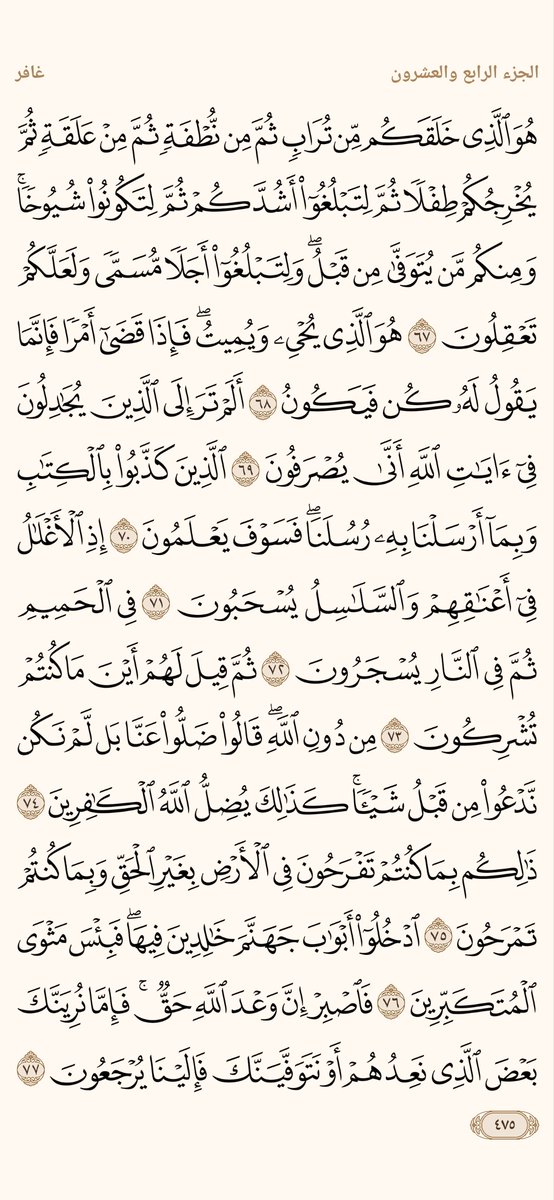 الجزء الرابع والعشرون
غافر
هُوَ ٱلَّذِى خَلَقَكُم مِّن تُرَابٖ ثُمَّ مِن نُّطۡفَةٖ ثُمَّ مِنۡ عَلَقَةٖ ثُمَّ
يُخۡرِجُكُمۡ طِفۡلٗا ثُمَّ لِتَبۡلُغُوٓاْ أَشُدَّكُمۡ ثُمَّ لِتَكُونُواْ شُيُوخٗاۚ
وَمِنكُم مَّن يُتَوَفَّىٰ مِن قَبۡلُۖ وَلِتَبۡلُغُوٓاْ أَجَلٗا مُّسَمّٗى وَلَعَلَّكُمۡ
تَعۡقِلُونَ ٦٧ هُوَ ٱلَّذِى يُحۡىِۦ وَيُمِيتُۖ فَإِذَا قَضَىٰٓ أَمۡرٗا فَإِنَّمَا
يَقُولُ لَهُۥ كُن فَيَكُونُ ٦٨ أَلَمۡ تَرَ إِلَى ٱلَّذِينَ يُجَٰدِلُونَ
فِىٓ ءَايَٰتِ ٱللَّهِ أَنَّىٰ يُصۡرَفُونَ ٦٩ ٱلَّذِينَ كَذَّبُواْ بِٱلۡكِتَٰبِ
وَبِمَآ أَرۡسَلۡنَا بِهِۦ رُسُلَنَاۖ فَسَوۡفَ يَعۡلَمُونَ ٧٠ إِذِ ٱلۡأَغۡلَٰلُ
فِىٓ أَعۡنَٰقِهِمۡ وَٱلسَّلَٰسِلُ يُسۡحَبُونَ ٧١ فِى ٱلۡحَمِيمِ
ثُمَّ فِى ٱلنَّارِ يُسۡجَرُونَ ٧٢ ثُمَّ قِيلَ لَهُمۡ أَيۡنَ مَا كُنتُمۡ
تُشۡرِكُونَ ٧٣ مِن دُونِ ٱللَّهِۖ قَالُواْ ضَلُّواْ عَنَّا بَل لَّمۡ نَكُن
نَّدۡعُواْ مِن قَبۡلُ شَيۡـٔٗاۚ كَذَٰلِكَ يُضِلُّ ٱللَّهُ ٱلۡكَٰفِرِينَ ٧٤
ذَٰلِكُم بِمَا كُنتُمۡ تَفۡرَحُونَ فِى ٱلۡأَرۡضِ بِغَيۡرِ ٱلۡحَقِّ وَبِمَا كُنتُمۡ
تَمۡرَحُونَ ٧٥ ٱدۡخُلُوٓاْ أَبۡوَٰبَ جَهَنَّمَ خَٰلِدِينَ فِيهَاۖ فَبِئۡسَ مَثۡوَى
ٱلۡمُتَكَبِّرِينَ ٧٦ فَٱصۡبِرۡ إِنَّ وَعۡدَ ٱللَّهِ حَقّٞۚ فَإِمَّا نُرِيَنَّكَ
بَعۡضَ ٱلَّذِى نَعِدُهُمۡ أَوۡ نَتَوَفَّيَنَّكَ فَإِلَيۡنَا يُرۡجَعُونَ ٧٧
٤٧٥